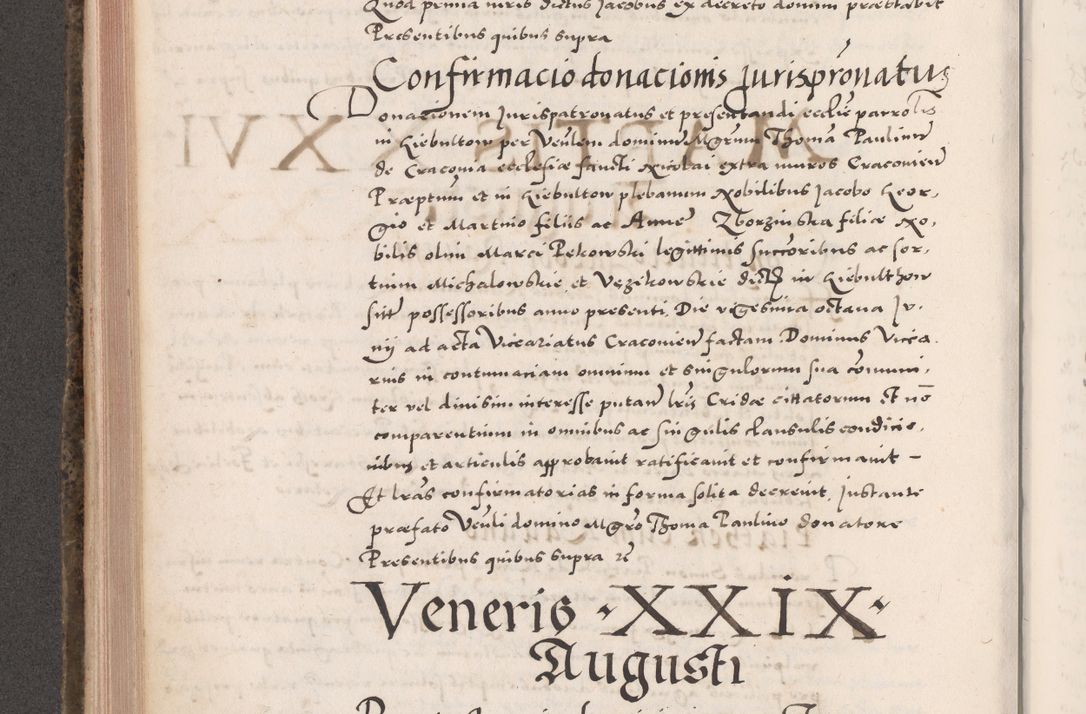 Quod prima iuris dictus Jacobus ex decreto domini præstabit
Presentibus quibus supra
Confirmacio donacionis Jurisprõnatus
Donacionem Jurispatronatus et presentandi ecclie parro
in Giebultow per Venlem dominum Mgrum Thomã Paulinum
de Cracouia ecclesiæ sancti Nicolai extra muros Cracouien
Præptum et in Giebultow plebanum Nobilibus Jacobo Geor,
gio et Martino filiis ac Annæ Zborzinska filiæ No,
bilis olim Marci Pekowski legittimis succoribus ac sor,
tium Michalowskie et Vezikowskie dict in Giebulthow
sitt possessoribus anno presenti. Die vigesima octaua Ju,
nij ad acta Vicariatus Cracouien factam. Dominus Vica,
rius in contumaciam omnium et singulorum sua cõmuni,
ter vel diuisim interesse putan lris Cridæ cittatorum et nõ
comparentium in omnibus ac singulis clausulis condicio,
nibus et articulis approbauit ratificauit et confirmauit –
Et lras confirmatorias in forma solita decreuit. Instante
præfato Venli domino Mgro Thoma Paulino donatore
Presentibus quibus supra
Veneris · XXIX ·
Augusti